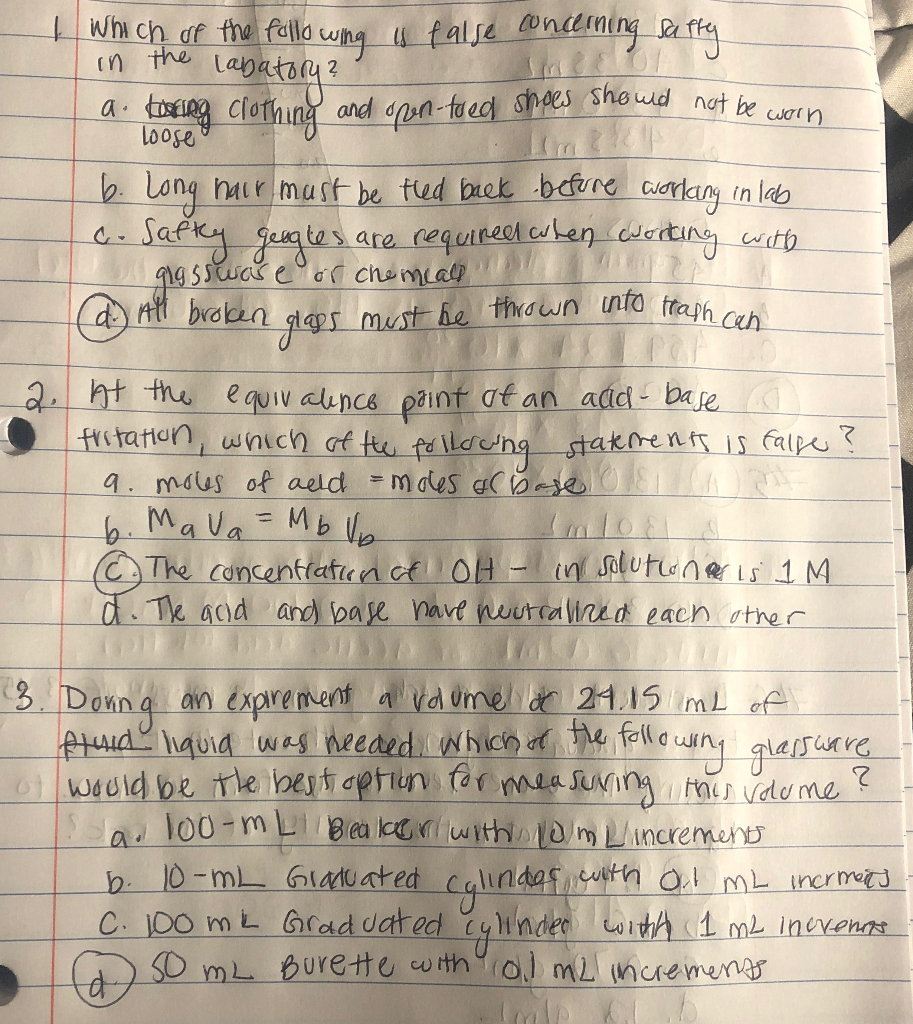 1. Which of the following is false concerning Saftty
in the labatory?
a. clothing and open-toed shoes should not be worn
loose
b. Long hair must be tied back before working in lab
c. Saftey googles are required when working with
glassware or chemicals
d. All broken glass must be thrown into trash can
2. At the equivalence point of an acid-base
tritation, which of the following statements is false?
a. moles of acid = moles of base
b. Ma Va = Mb Vb
C. The concentration of OH - in solution is 1 M
d. The acid and base have neutralized each other
3. Doring an exprement a volume of 24.15 mL of
fluid liquid was needed. Which of the following glassware
would be the best option for measuring this volume?
a. 100-mL Beaker with 10 mL increments
b. 10-mL Graduated cylinder with 0.1 mL incrments
C. 100 mL Graduated cylinder with 1 mL increments
d. 50 mL Burette with 0.1 mL increments